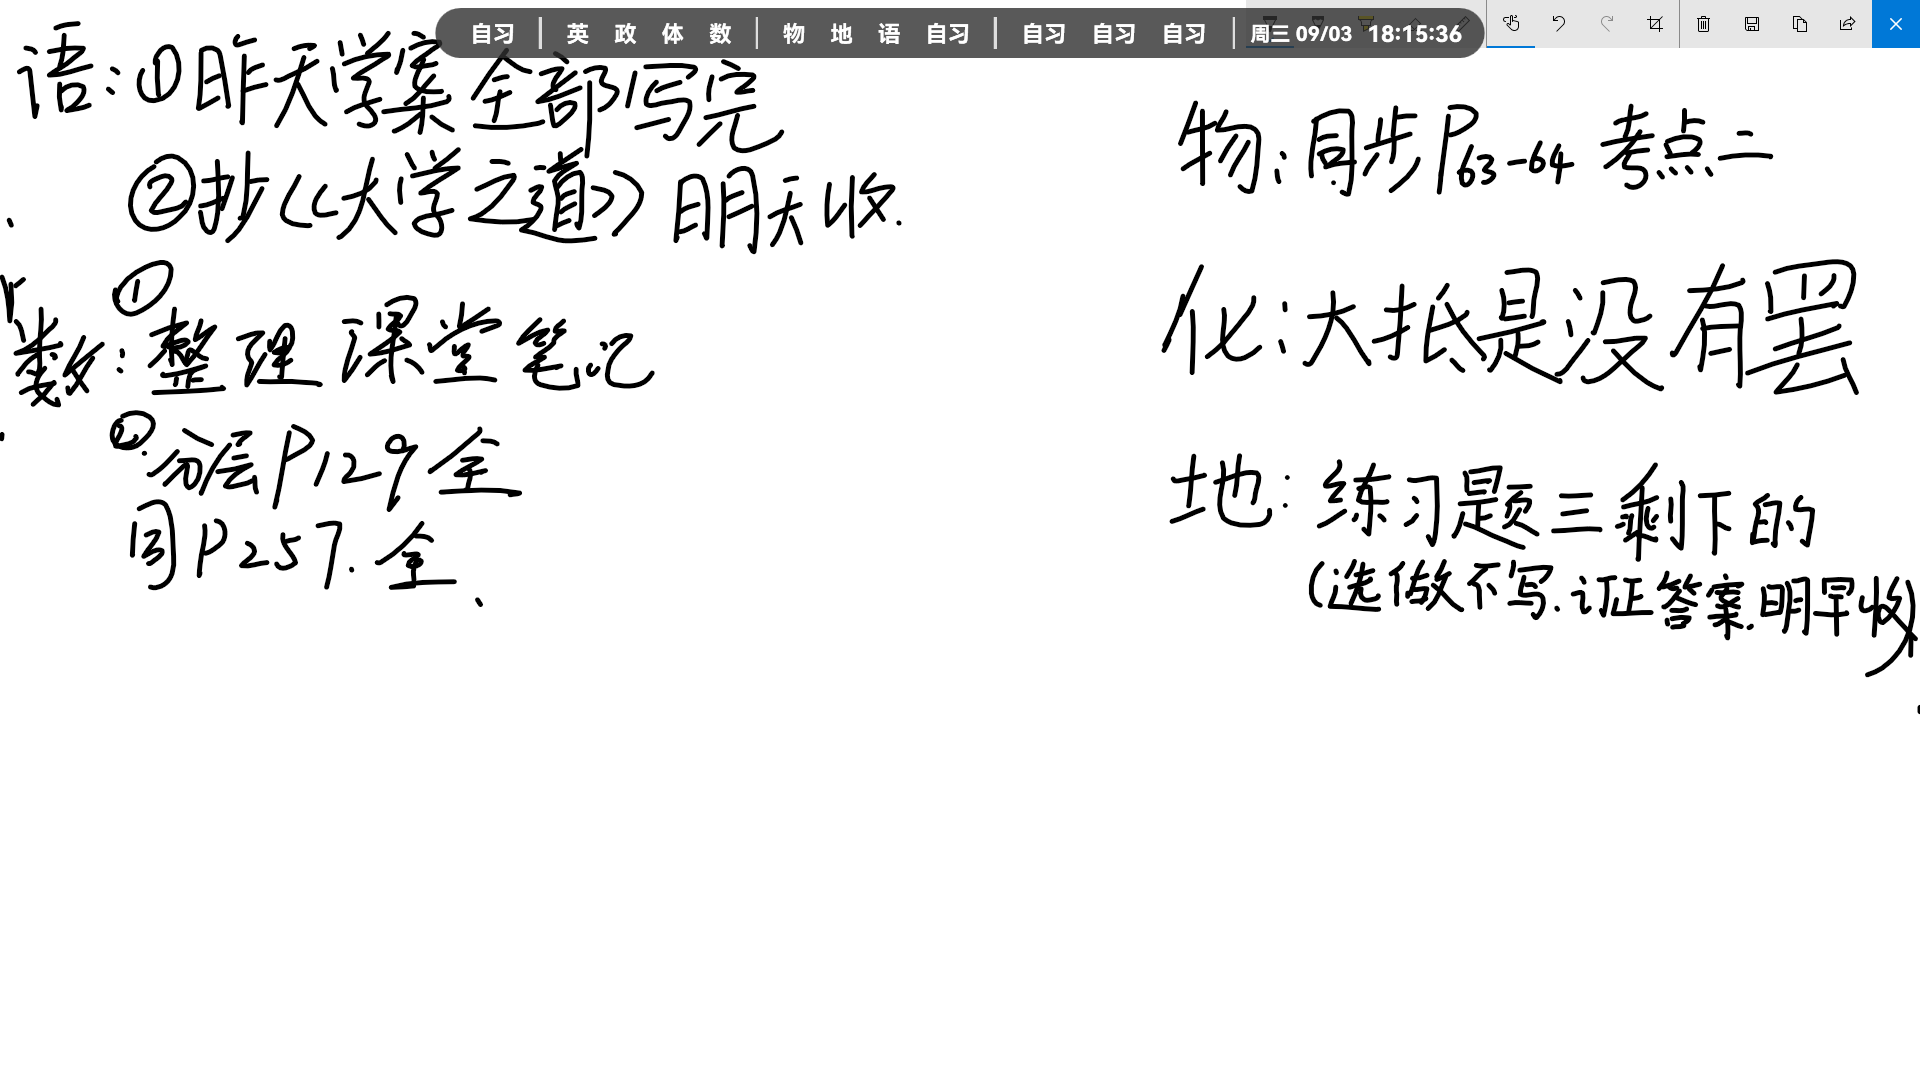 自习 | 英 政 体 数 | 物 地 语 自习 | 自习 自习 自习 | 周三 09/03 18:15:36
语:①昨天学案全部写完
②抄《大学之道》明天收.
数:①整理课堂笔记
②分层P129全
同P257.全、
物:同步P63-64考点二
化:大抵是没有罢
地:练习题三剩下的
(选做不写.订正答案.明早收)